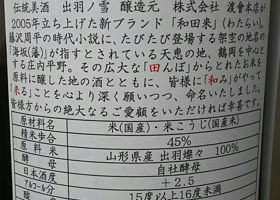 伝統美酒 出羽ノ雪 醸造元 株式会社 渡會本店が
2005年立ち上げた新ブランド「和田来」(わたらい)。
藤沢周平の時代小説に、たびたび登場する架空の地名の
「海坂藩」が指すとされている天恵の地、鶴岡を中心と
する庄内平野。その広大な「田んぼ」からとれたお米を
原料に醸した地の酒とともに、皆様に「和み」がやって
「来る」ことを心より深く願いつつ、命名いたしました。
皆様方からの絶大なるご愛顧をいただければ幸甚です。
原材料名 米(国産)・米こうじ(国産米)
精米歩合 45%
原料米 山形県産 出羽燦々 100%
酵母 自社酵母
日本酒度 +2.5
アルコール分 15度以上16度未満